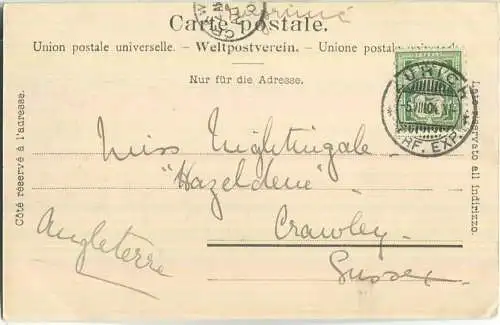 Carte postale.
Imprimé
Union postale universelle. – Weltpostverein. – Unione postale universale.
Nur für die Adresse.
ZÜRICH
BRF. EXP.
Côté réservé à l'adresse.
Lato riservato all indirizzo.
Miss Nightingale
"Hazeldene"
Crawley
Sussex
Angleterre